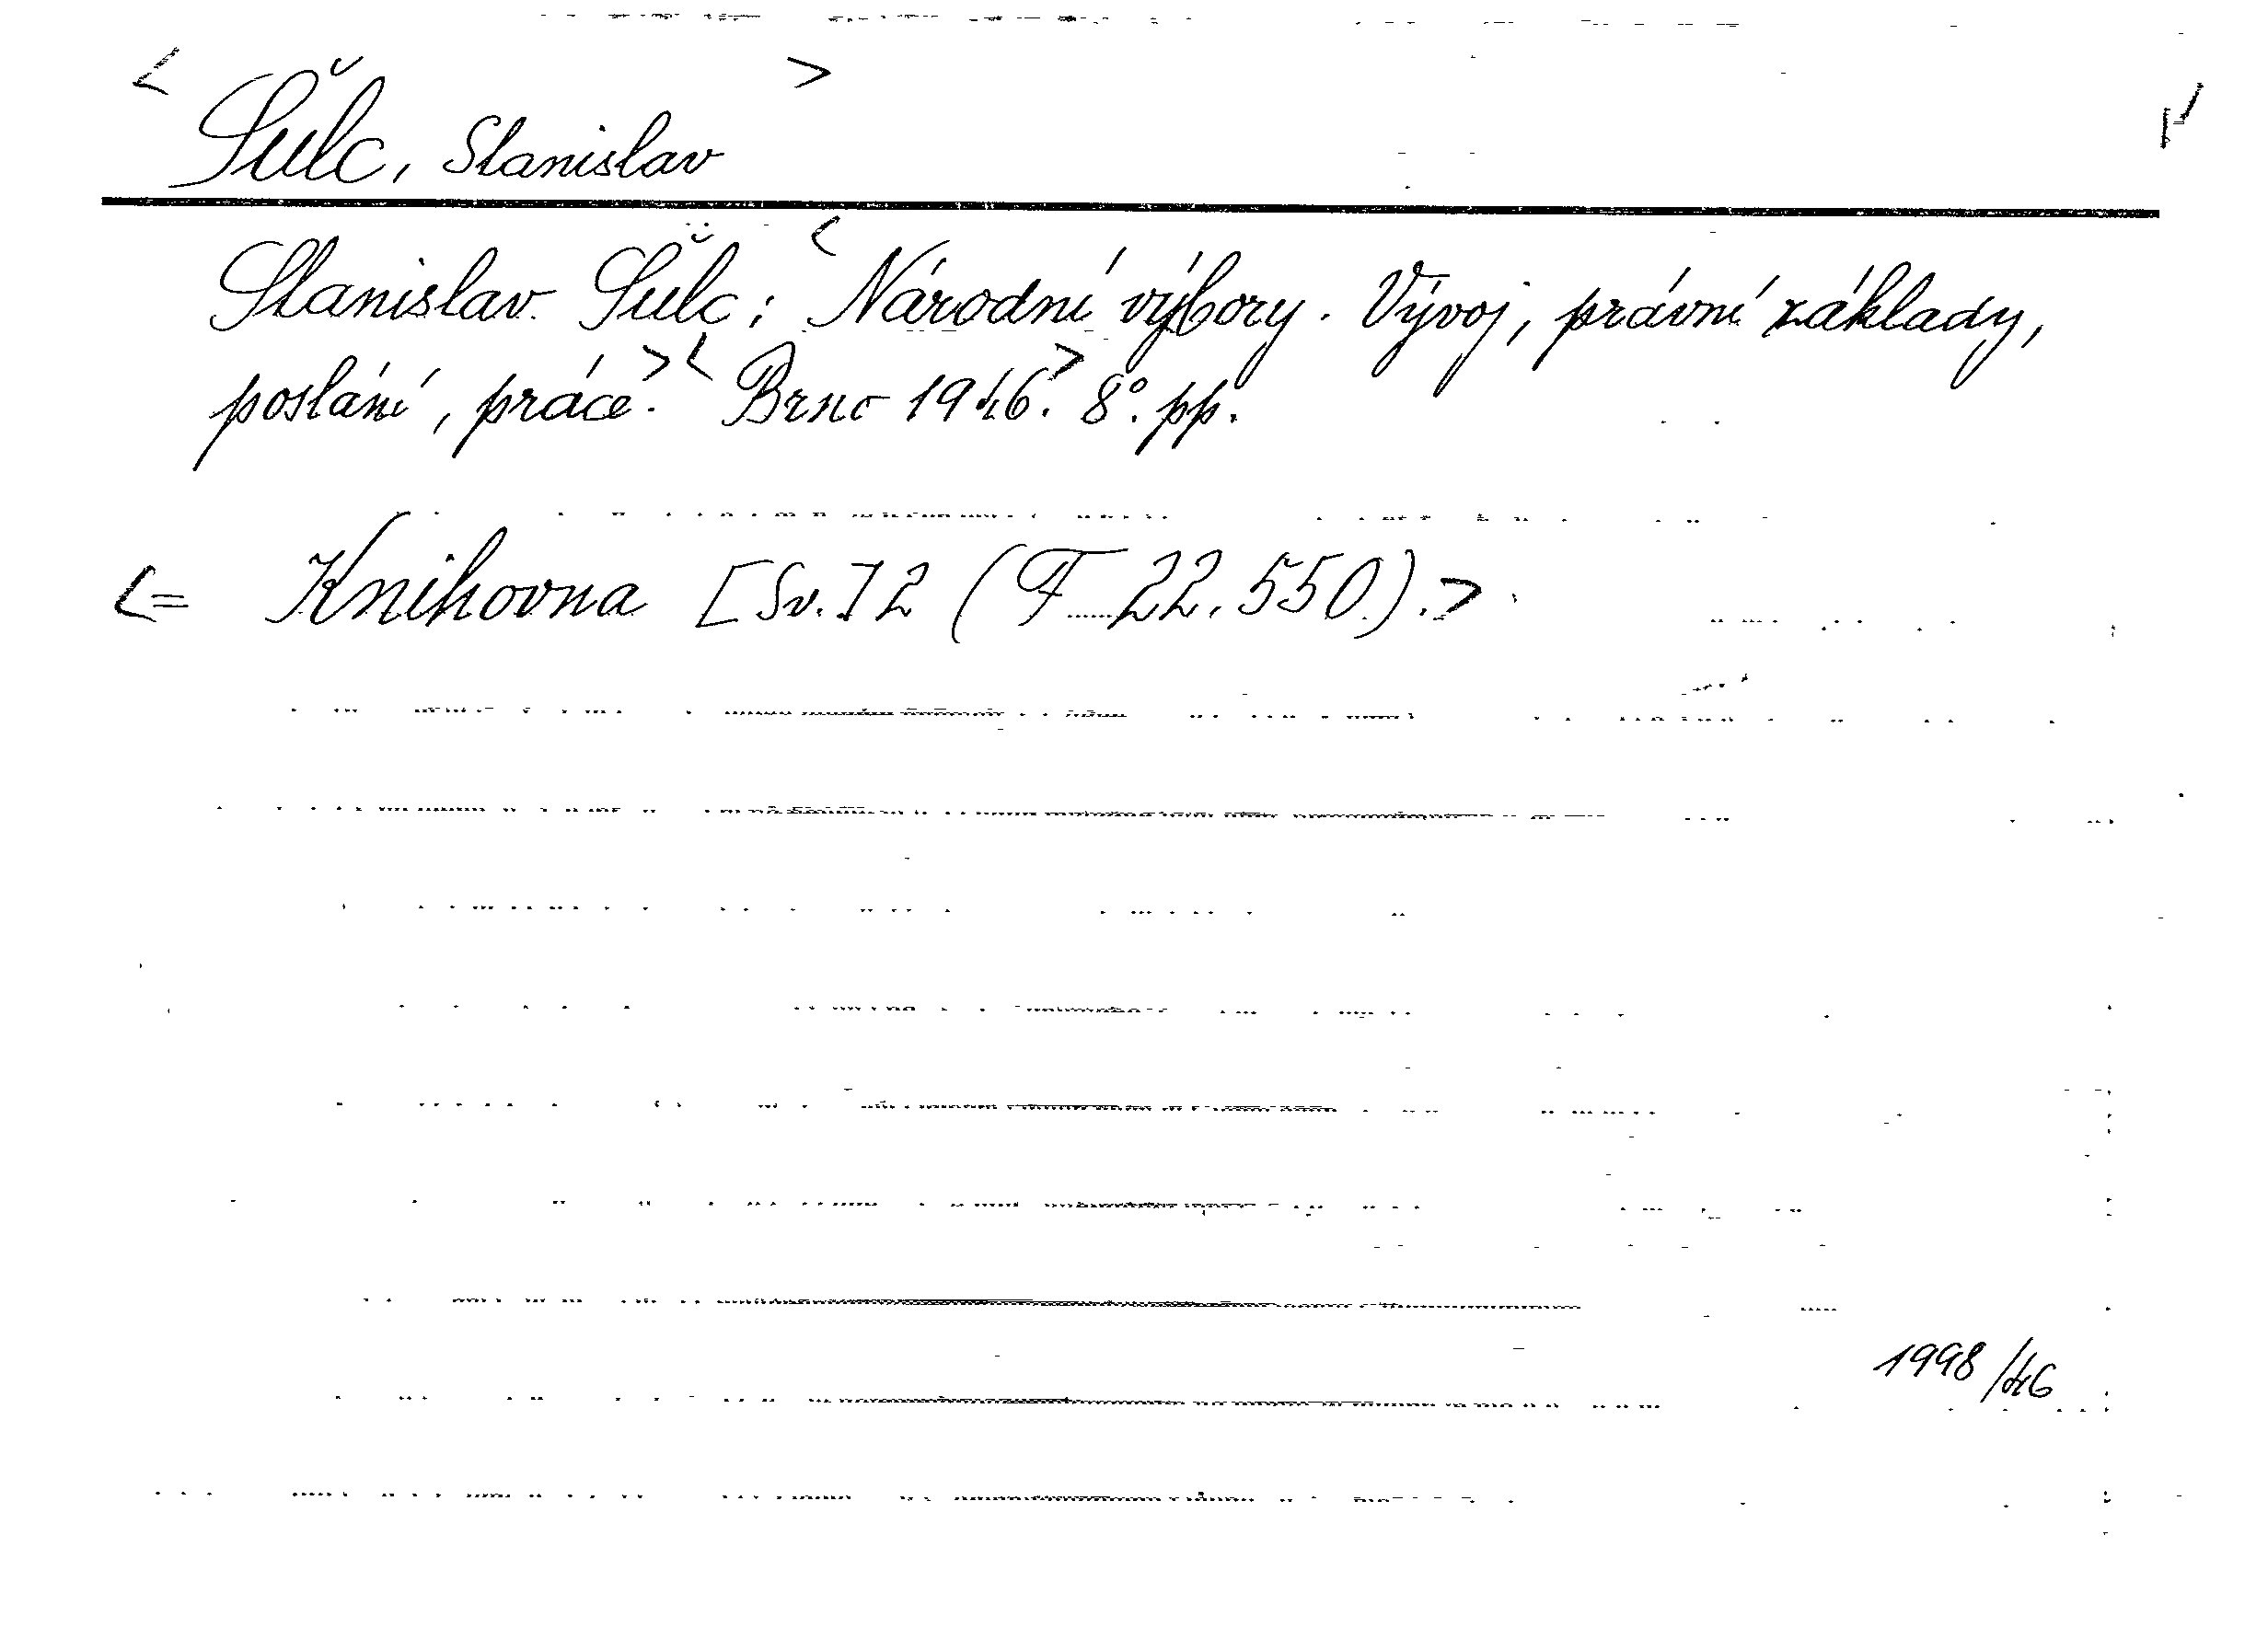 < Šulc, Stanislav >
Stanislav Šulc: < Národní výbory. Vývoj, právní základy,
poslání, práce. > < Brno 1946. > 8°. pp.
<= Knihovna [Sv.] 2 (F 22.550). >
1998/46